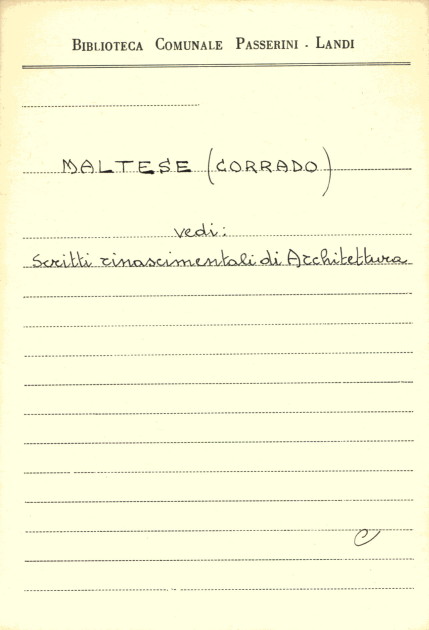 BIBLIOTECA COMUNALE PASSERINI - LANDI
MALTESE (CORRADO)
vedi:
Scritti rinascimentali di Architettura
C